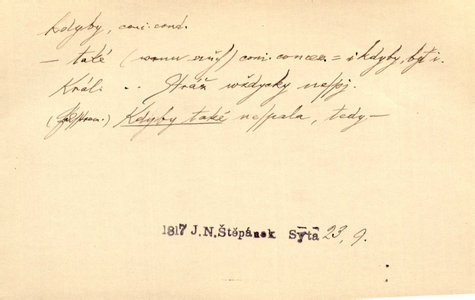 kdyby, coni. cond.
— také (wenn auch) coni. conces. = i kdyby, byť i.
Král: .. Stráž wždycky nespj.
Kdyby také nespala, tedy —
1817 J.N.Štěpánek Sýtá 23, 9.